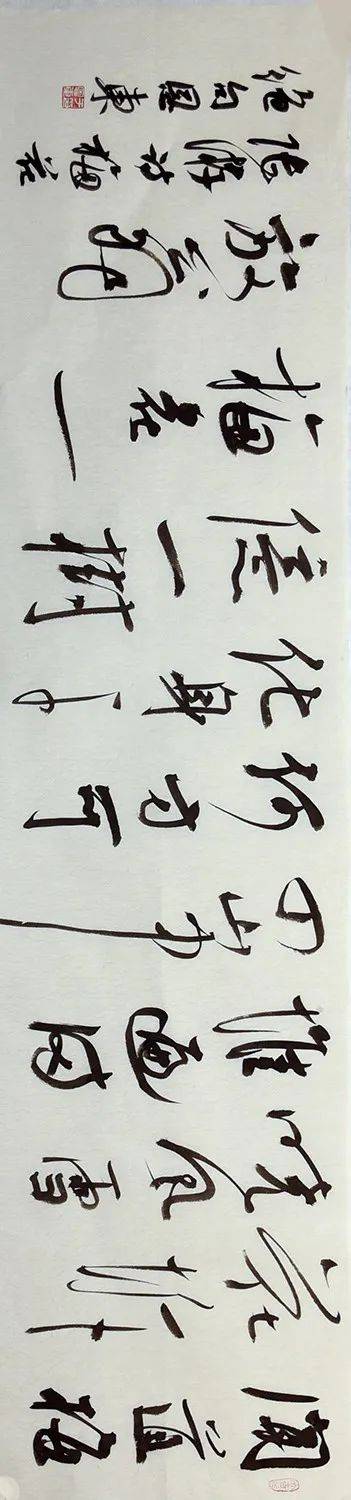 聞道梅
花坼
曉風雪
堆遍滿
四山中
何方可
化身千
億一樹
梅花一
放翁
陸游詩梅花
絕句恩東